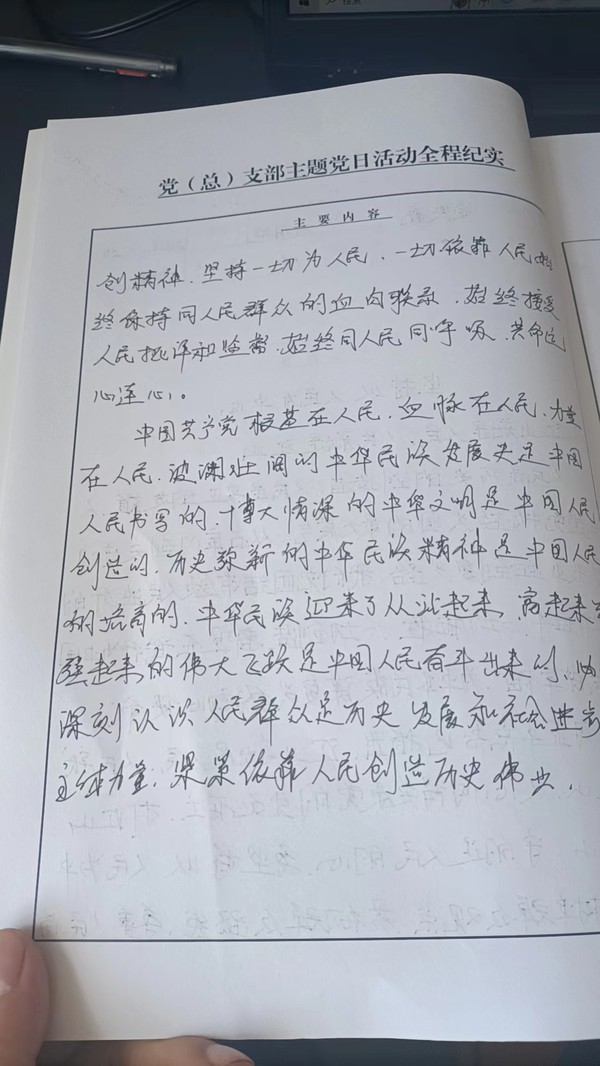 党（总）支部主题党日活动全程纪实
主要内容
创精神，坚持一切为人民，一切依靠人民，始
终保持同人民群众的血肉联系，始终接受
人民批评和监督，始终同人民同呼吸、共命运
心连心。
中国共产党根基在人民，血脉在人民，力量
在人民，波澜壮阔的中华民族发展史是中国
人民书写的，博大精深的中华文明是中国人民
创造的，历史弥新的中华民族精神是中国人民
培育的，中华民族迎来了从站起来，富起来
强起来的伟大飞跃是中国人民奋斗出来的，
深刻认识人民群众是历史发展和社会进步
主体力量，紧紧依靠人民创造历史伟业，